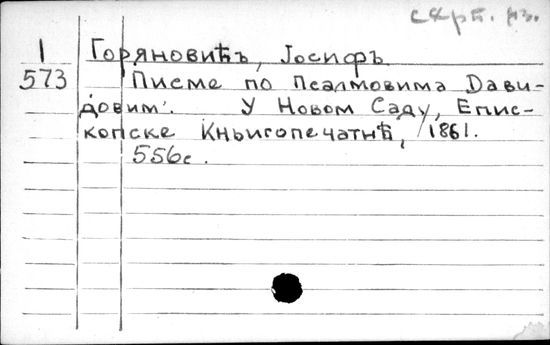 I Горяновићъ, Јосифъ
573 Писме по Псалмовима Дави-
довим'. У Новом Саду, Епис-
копске Књигопечатнѣ, 1861.
556с.